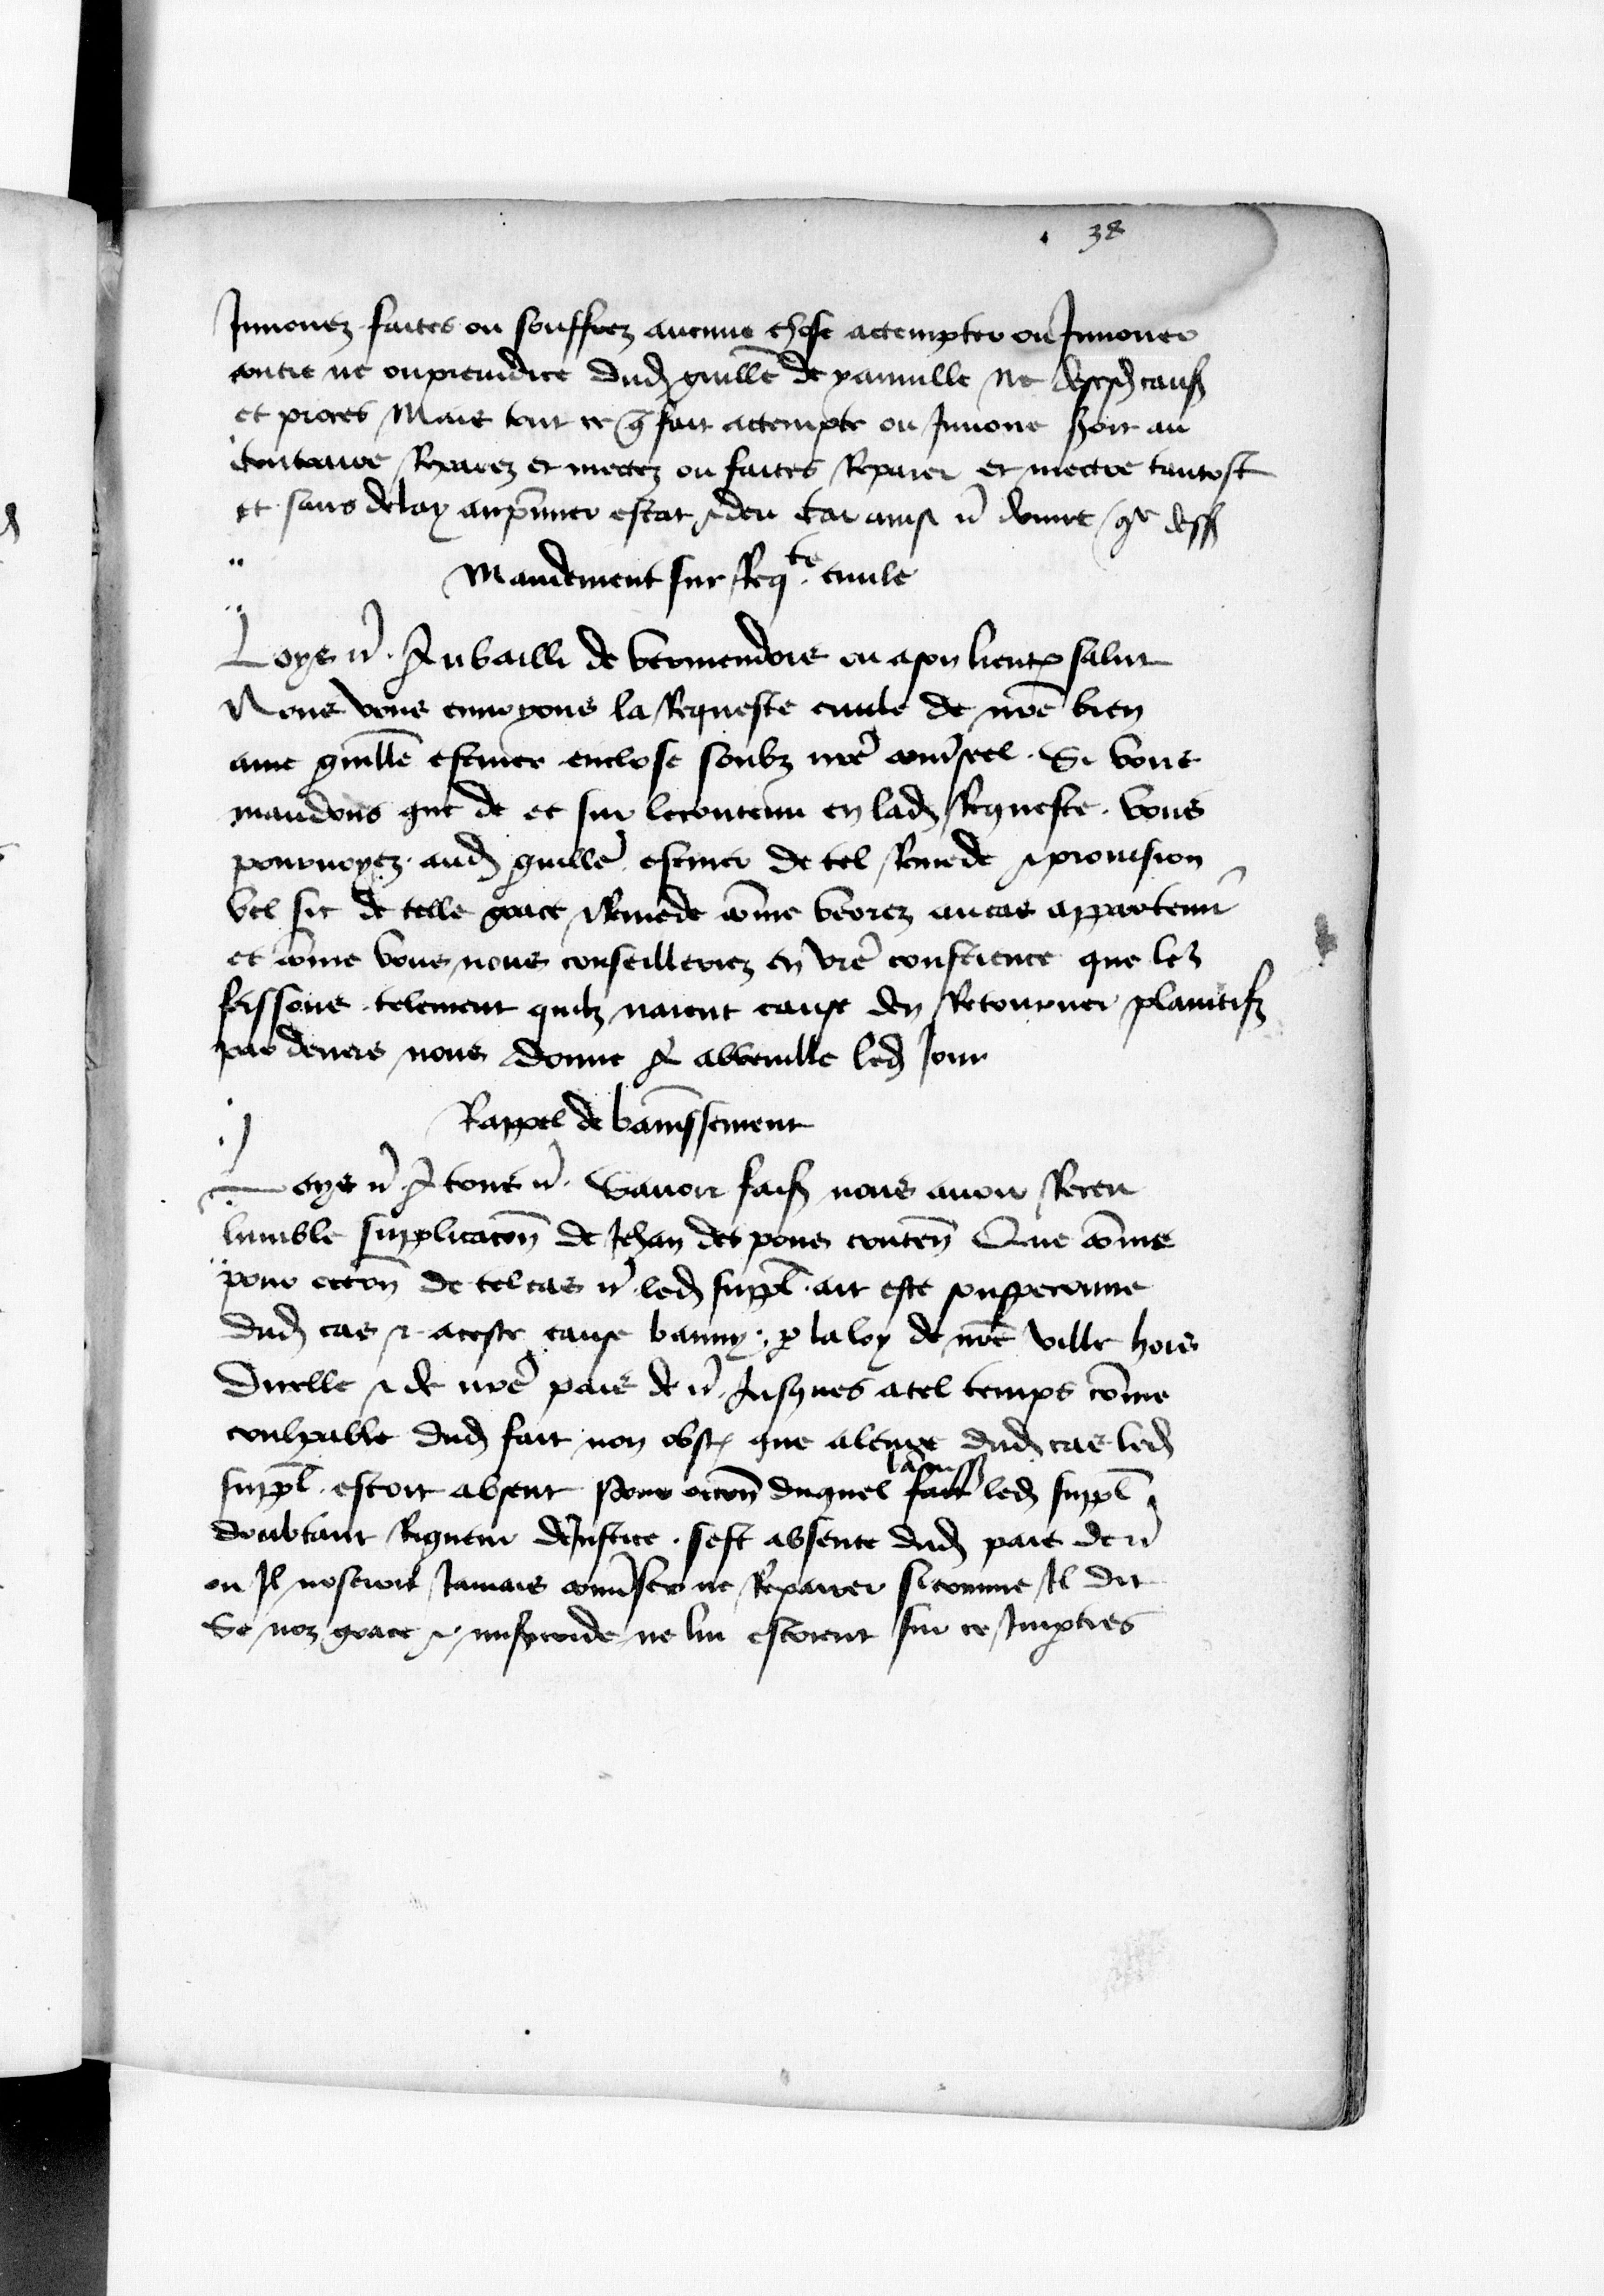 38
Innouez faites ou souffrez aucune chose actempter ou Innouer
contre ne ou preiudice dud guille de yauuille Ne desesd cauß
et proces Mais tout ce q fait actempte ou Innoue seroit au
contraire Reparez et mectez ou faites Reparer et mectre tantost
et sans delay au pmier estat & deu Car ainsi
Mandement sur Reqte ciuile
Loys Au bailli de vermendois ou a son lieuten salut
Nous vous enuoyons la Requeste ciuile de nre bien
ame guille esmer enclose soubz nre contrseel Si vous
mandons que de et sur le contenu en lad Requeste vous
pouruoyez aud guille esmer de tel Remede & prouision
vel sic de telle grace Remede come verrez au cas appartenir
et come vous nous conseilleriez en vre conscience que le
feissons telement quilz naient cause den Retourner plaintifz
par deuers nous donne A abbeuille led Jour
Rappel de banissement
Loys A tous Sauoir faiß nous auoir Receu
lumble supplicacon de Jehan des pons conten Que come
pour occon de tel cas led suppl ait este souspeconne
dud cas & a ceste cause banny p la loy de nre ville hors
dicelle & de nre pais de Jusques a tel temps come
coulpable dud fait non obst que aleure dud cas led
suppl estoit absent Pour occon duquel fait led suppl
doubtant Rigueur de Justice sest absente dud pais de
ou Il noseroit Jamais conuser ne Repairer si comme Il dit
Se noz grace & misericorde ne lui estoient sur ce Impties